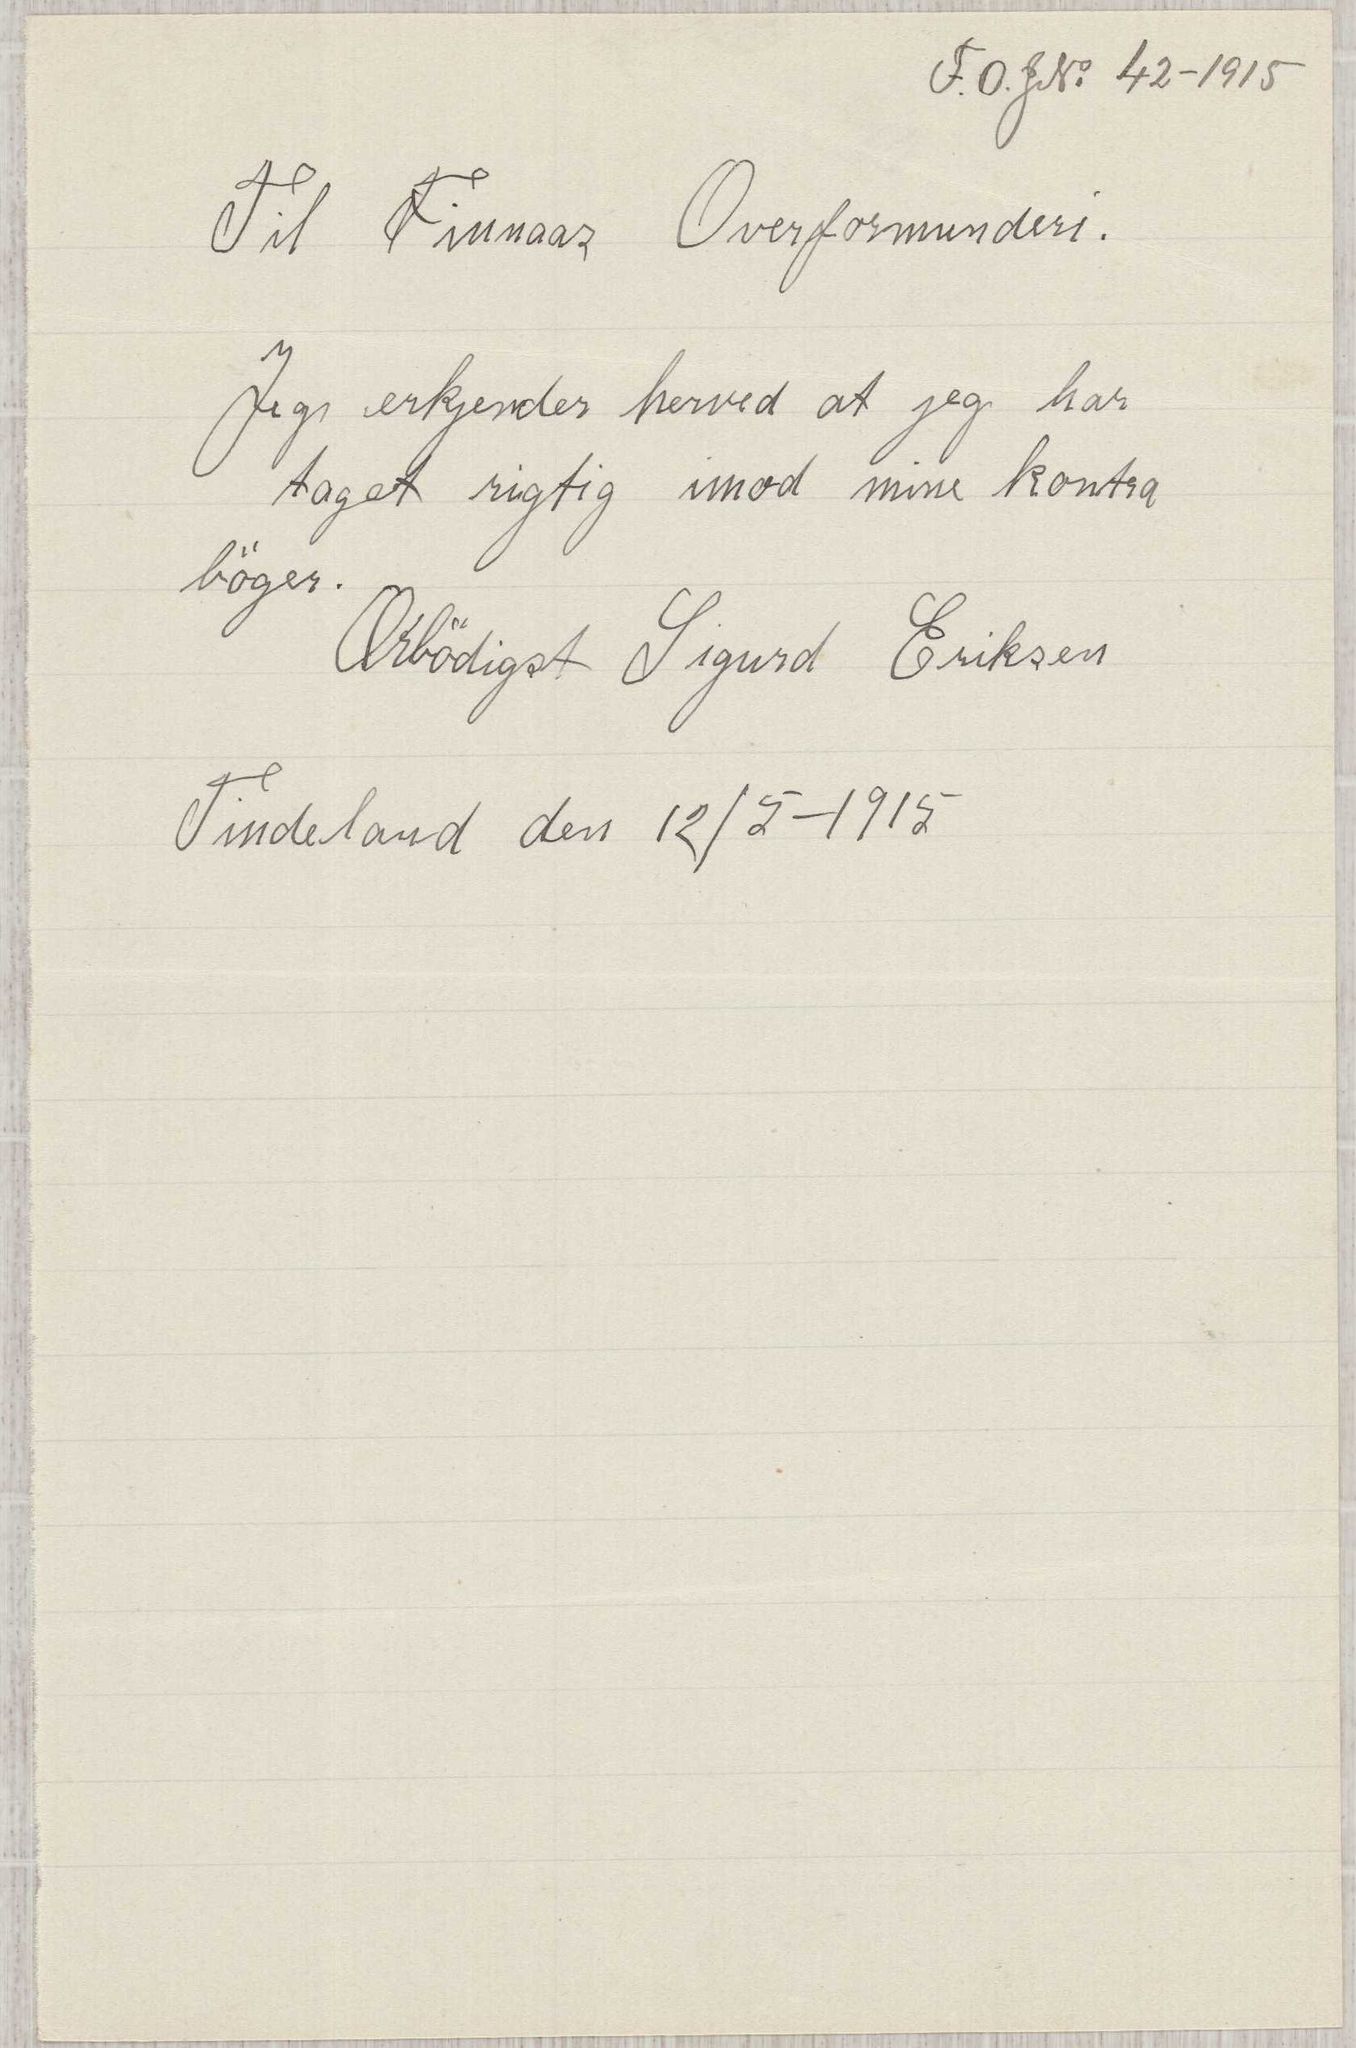 F. O. J No 42-1915
Til Finnaas Overformunderi.
Jeg erkjender herved at jeg har
taget rigtig imod mine kontra
böger.
Ærbödigst Sigurd Eriksen
Tindeland den 12/5-1915